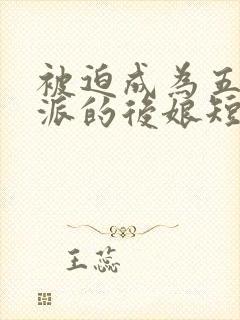 被迫成為五
派的後娘短
王蕊